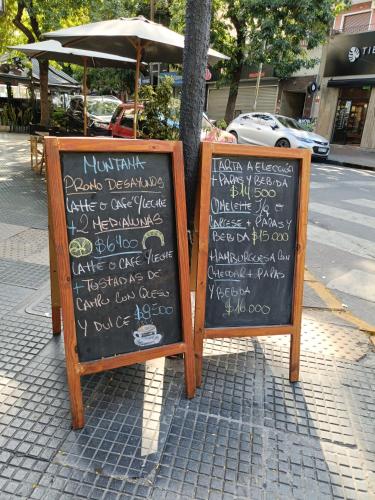 MUNTANA
PROMO DESAYUNOS
LATTE O CAFE C/LECHE
+ 2 MEDIALUNAS
$6400
LATTE O CAFE C/LECHE
+ TOSTADAS DE
CAMPO CON QUESO
Y DULCE $9500
TARTA A ELECCION
+ PAPAS Y BEBIDA
$14500
OMELETTE J/Q
CAPRESE + PAPAS Y
BEBIDA $15.000
HAMBURGUESA CON
CHEDDAR + PAPAS
Y BEBIDA
$16.000